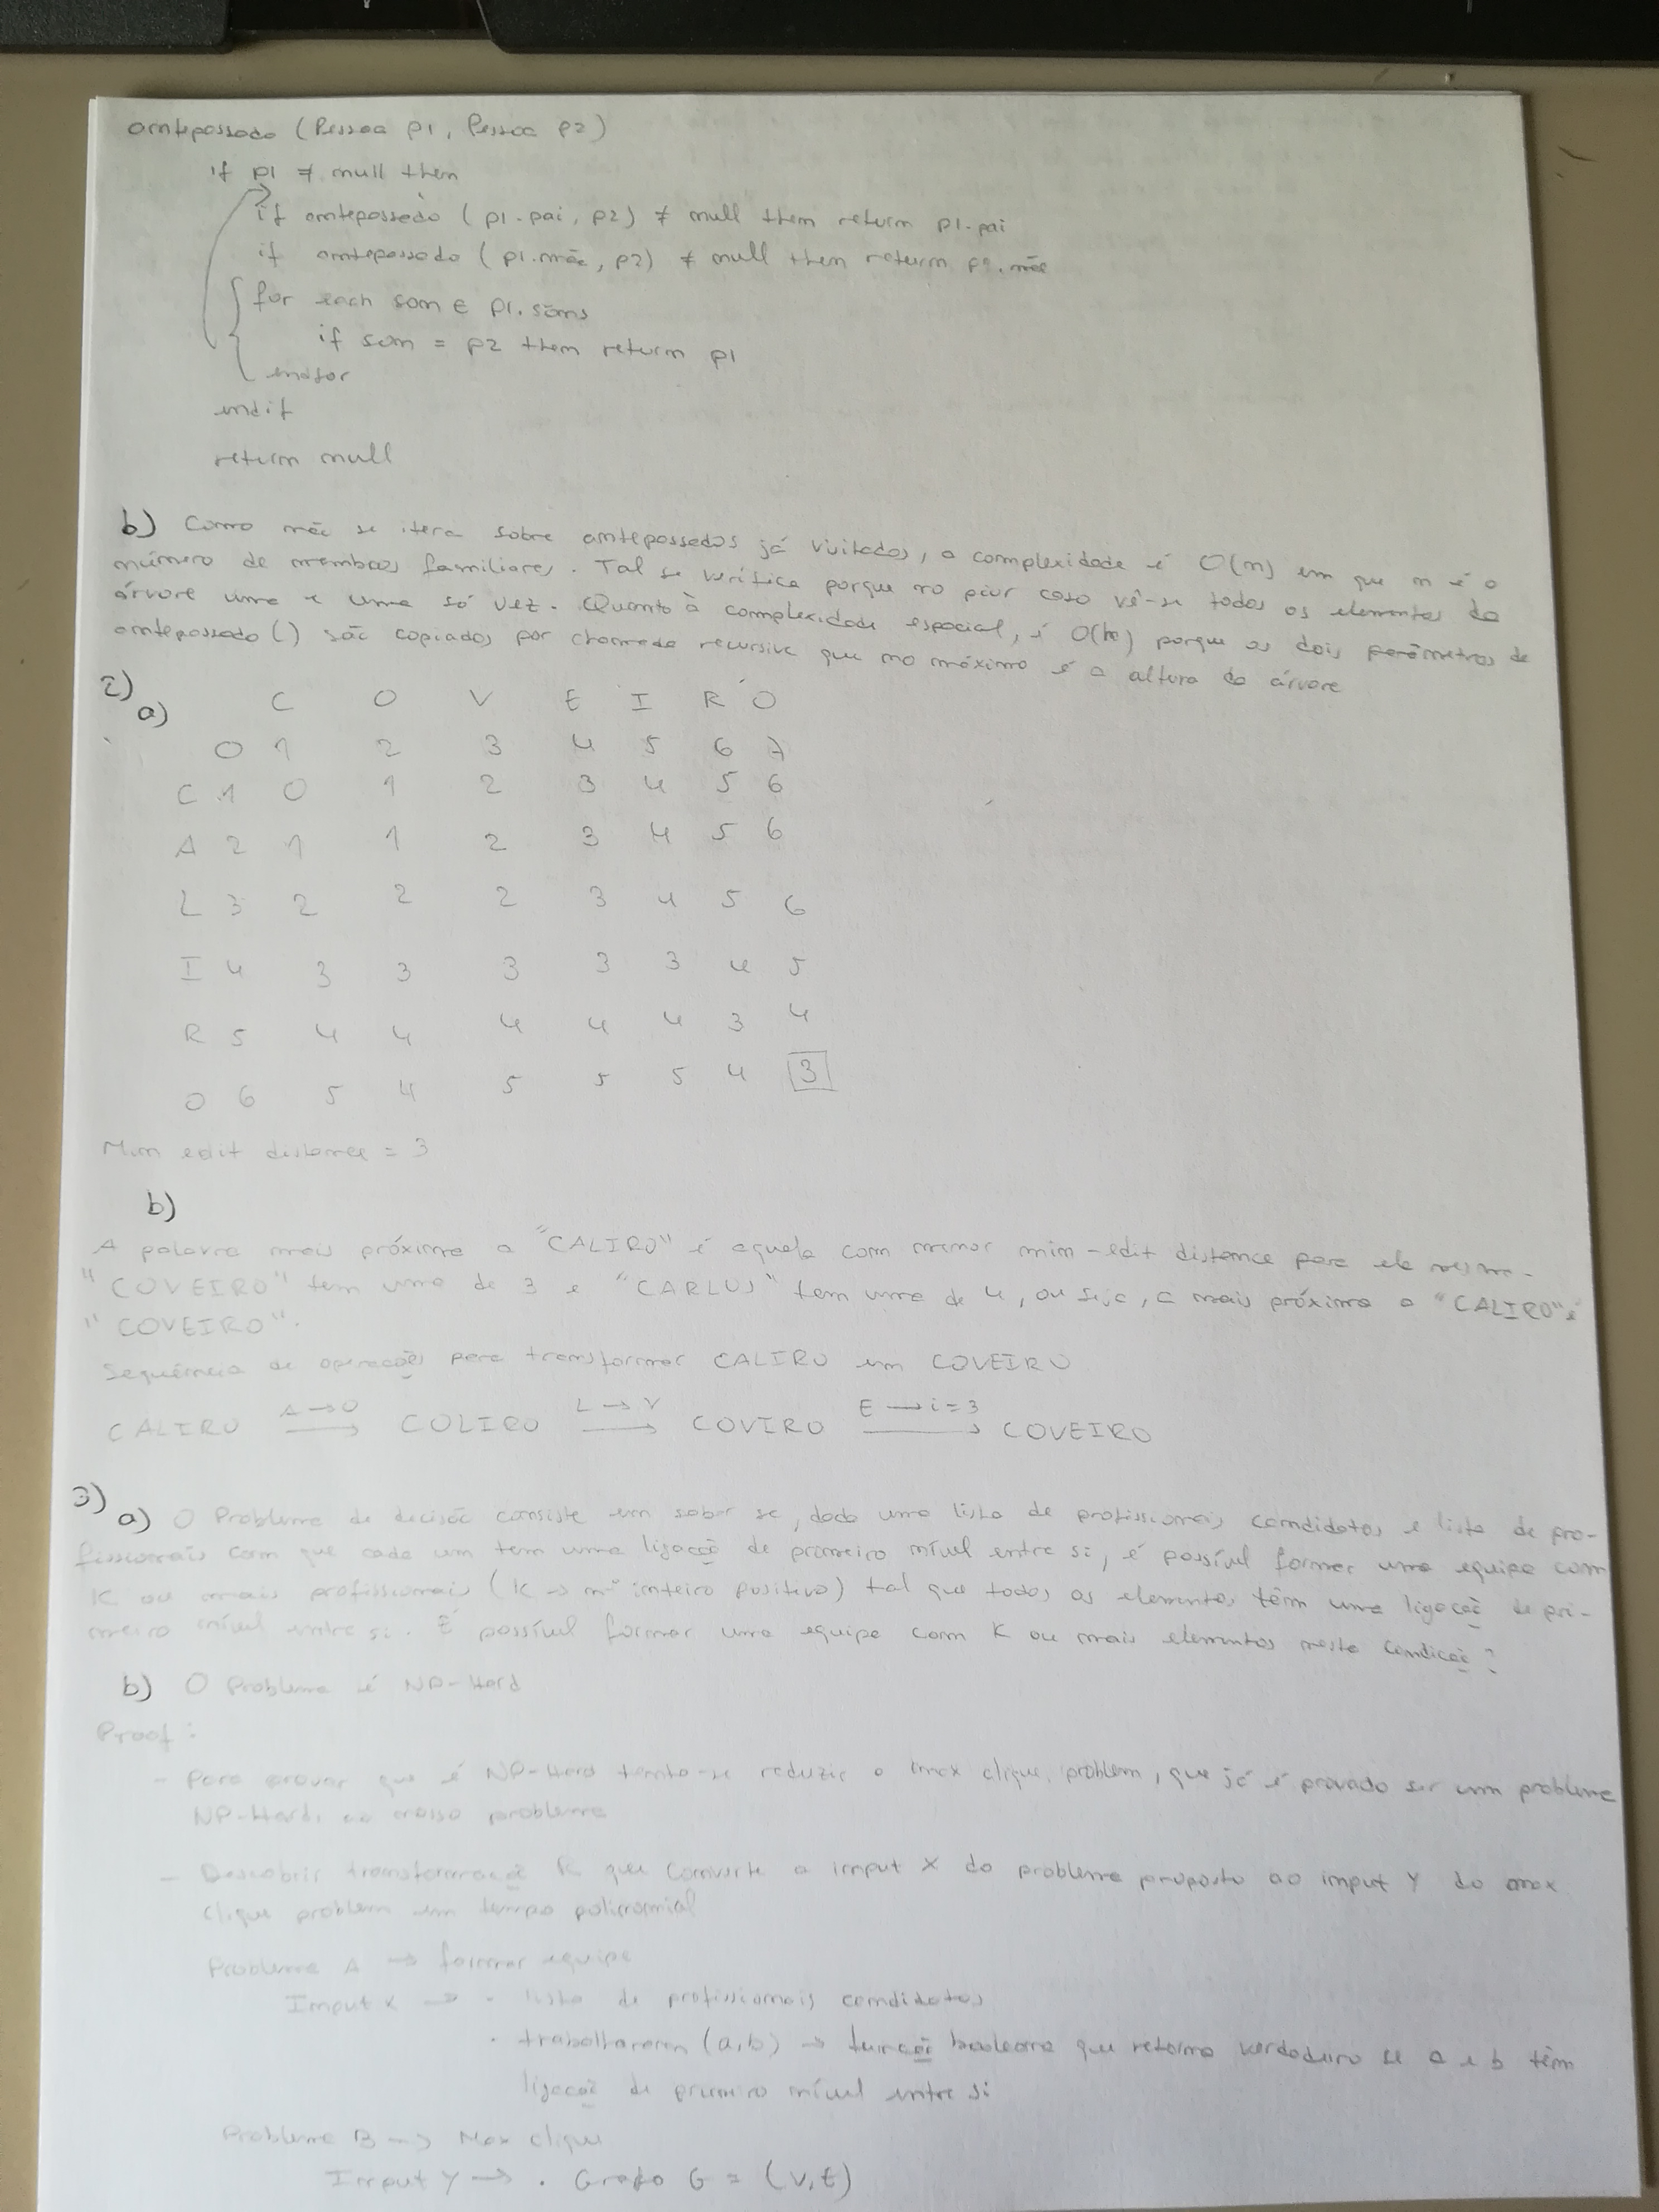 antepassado (Pessoa p1, Pessoa p2)
if p1 ≠ null then
if antepassado (p1.pai, p2) ≠ null then return p1.pai
if antepassado (p1.mãe, p2) ≠ null then return p1.mãe
for each son ∈ p1.sons
if son = p2 then return p1
endfor
endif
return null
b) Como não se itera sobre antepassados já visitados, a complexidade é O(n) em que n é o
número de membros familiares. Tal se verifica porque no pior caso vê-se todos os elementos da
árvore uma e uma só vez. Quanto à complexidade espacial, é O(h) porque os dois parâmetros de
antepassado() são copiados por chamada recursiva que no máximo é a altura da árvore
2)
a) C O V E I R O
0 1 2 3 4 5 6 7
C 1 0 1 2 3 4 5 6
A 2 1 1 2 3 4 5 6
L 3 2 2 2 3 4 5 6
I 4 3 3 3 3 3 4 5
R 5 4 4 4 4 4 3 4
O 6 5 4 5 5 5 4 3
Min edit distance = 3
b)
A palavra mais próxima a "CALIRO" é aquela com menor min-edit distance para ela mesma.
"COVEIRO" tem uma de 3 e "CARLOS" tem uma de 4, ou seja, a mais próxima a "CALIRO" é
"COVEIRO".
Sequência de operações para transformar CALIRO em COVEIRO
CALIRO A→O COLIRO L→V COVIRO E→i=3 COVEIRO
3)
a) O Problema de decisão consiste em saber se, dada uma lista de profissionais candidatos e lista de pro-
fissionais com que cada um tem uma ligação de primeiro nível entre si, é possível formar uma equipa com
K ou mais profissionais (K → nº inteiro positivo) tal que todos os elementos têm uma ligação de pri-
meiro nível entre si. É possível formar uma equipa com K ou mais elementos nesta condição?
b) O Problema é NP-Hard
Proof:
- Para provar que é NP-Hard tenta-se reduzir o max clique problem, que já é provado ser um problema
NP-Hard, ao nosso problema
- Descobrir transformação R que converte o input X do problema proposto ao input Y do max
clique problem em tempo polinomial
Problema A → formar equipa
Input X → · lista de profissionais candidatos
· trabalharam (a,b) → função booleana que retorna verdadeiro se a e b têm
ligação de primeiro nível entre si
Problema B → Max clique
Input Y → · Grafo G = (V,E)